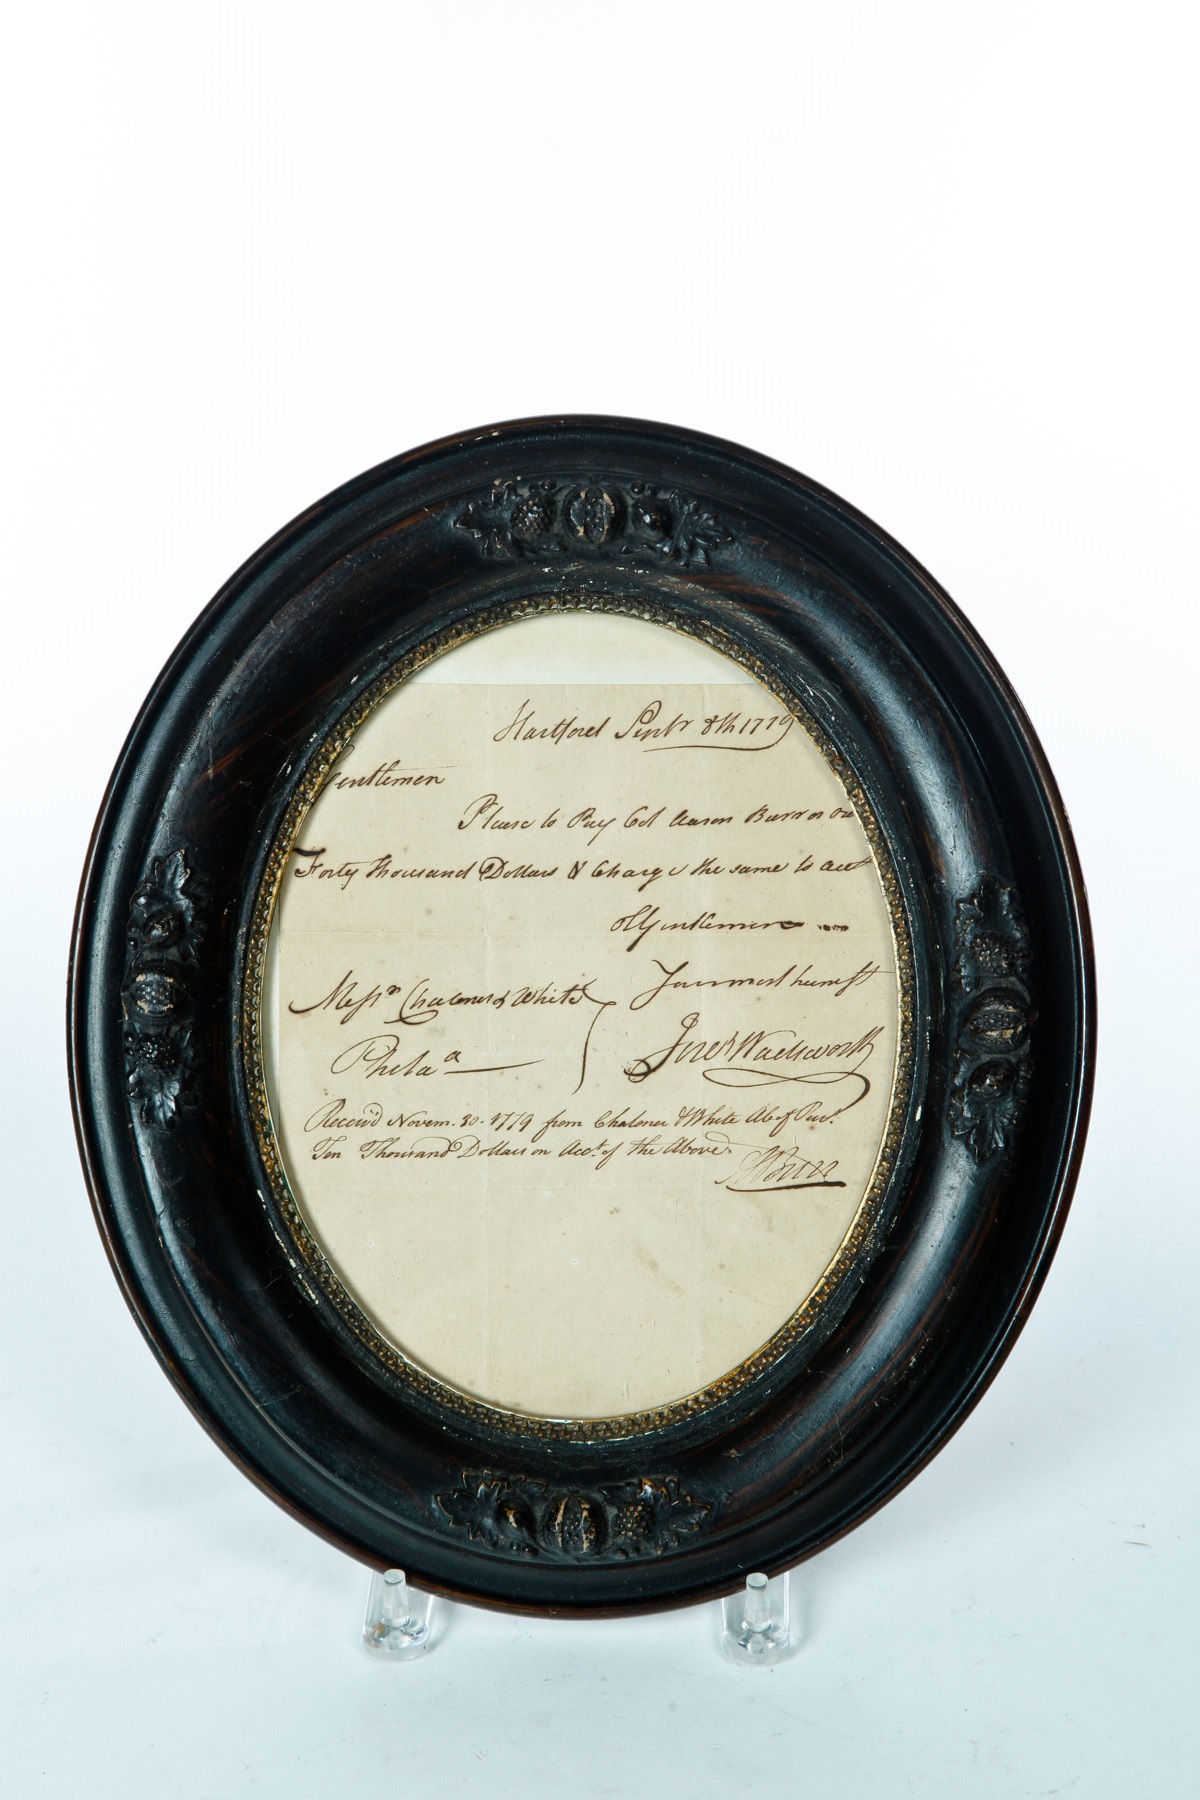 Hartford Septr 8th 1779
Gentlemen
Please to Pay Col Aaron Burr or
Forty thousand Dollars & Charge the same to acct
Gentlemen
Messrs Chaloner & White
Your most humst
Phelaa
Jereh Wadsworth
Receiv'd Novem. 30. 1779 from Chaloner & White
Ten Thousand Dollars on Acct. of the Above.
ABurr